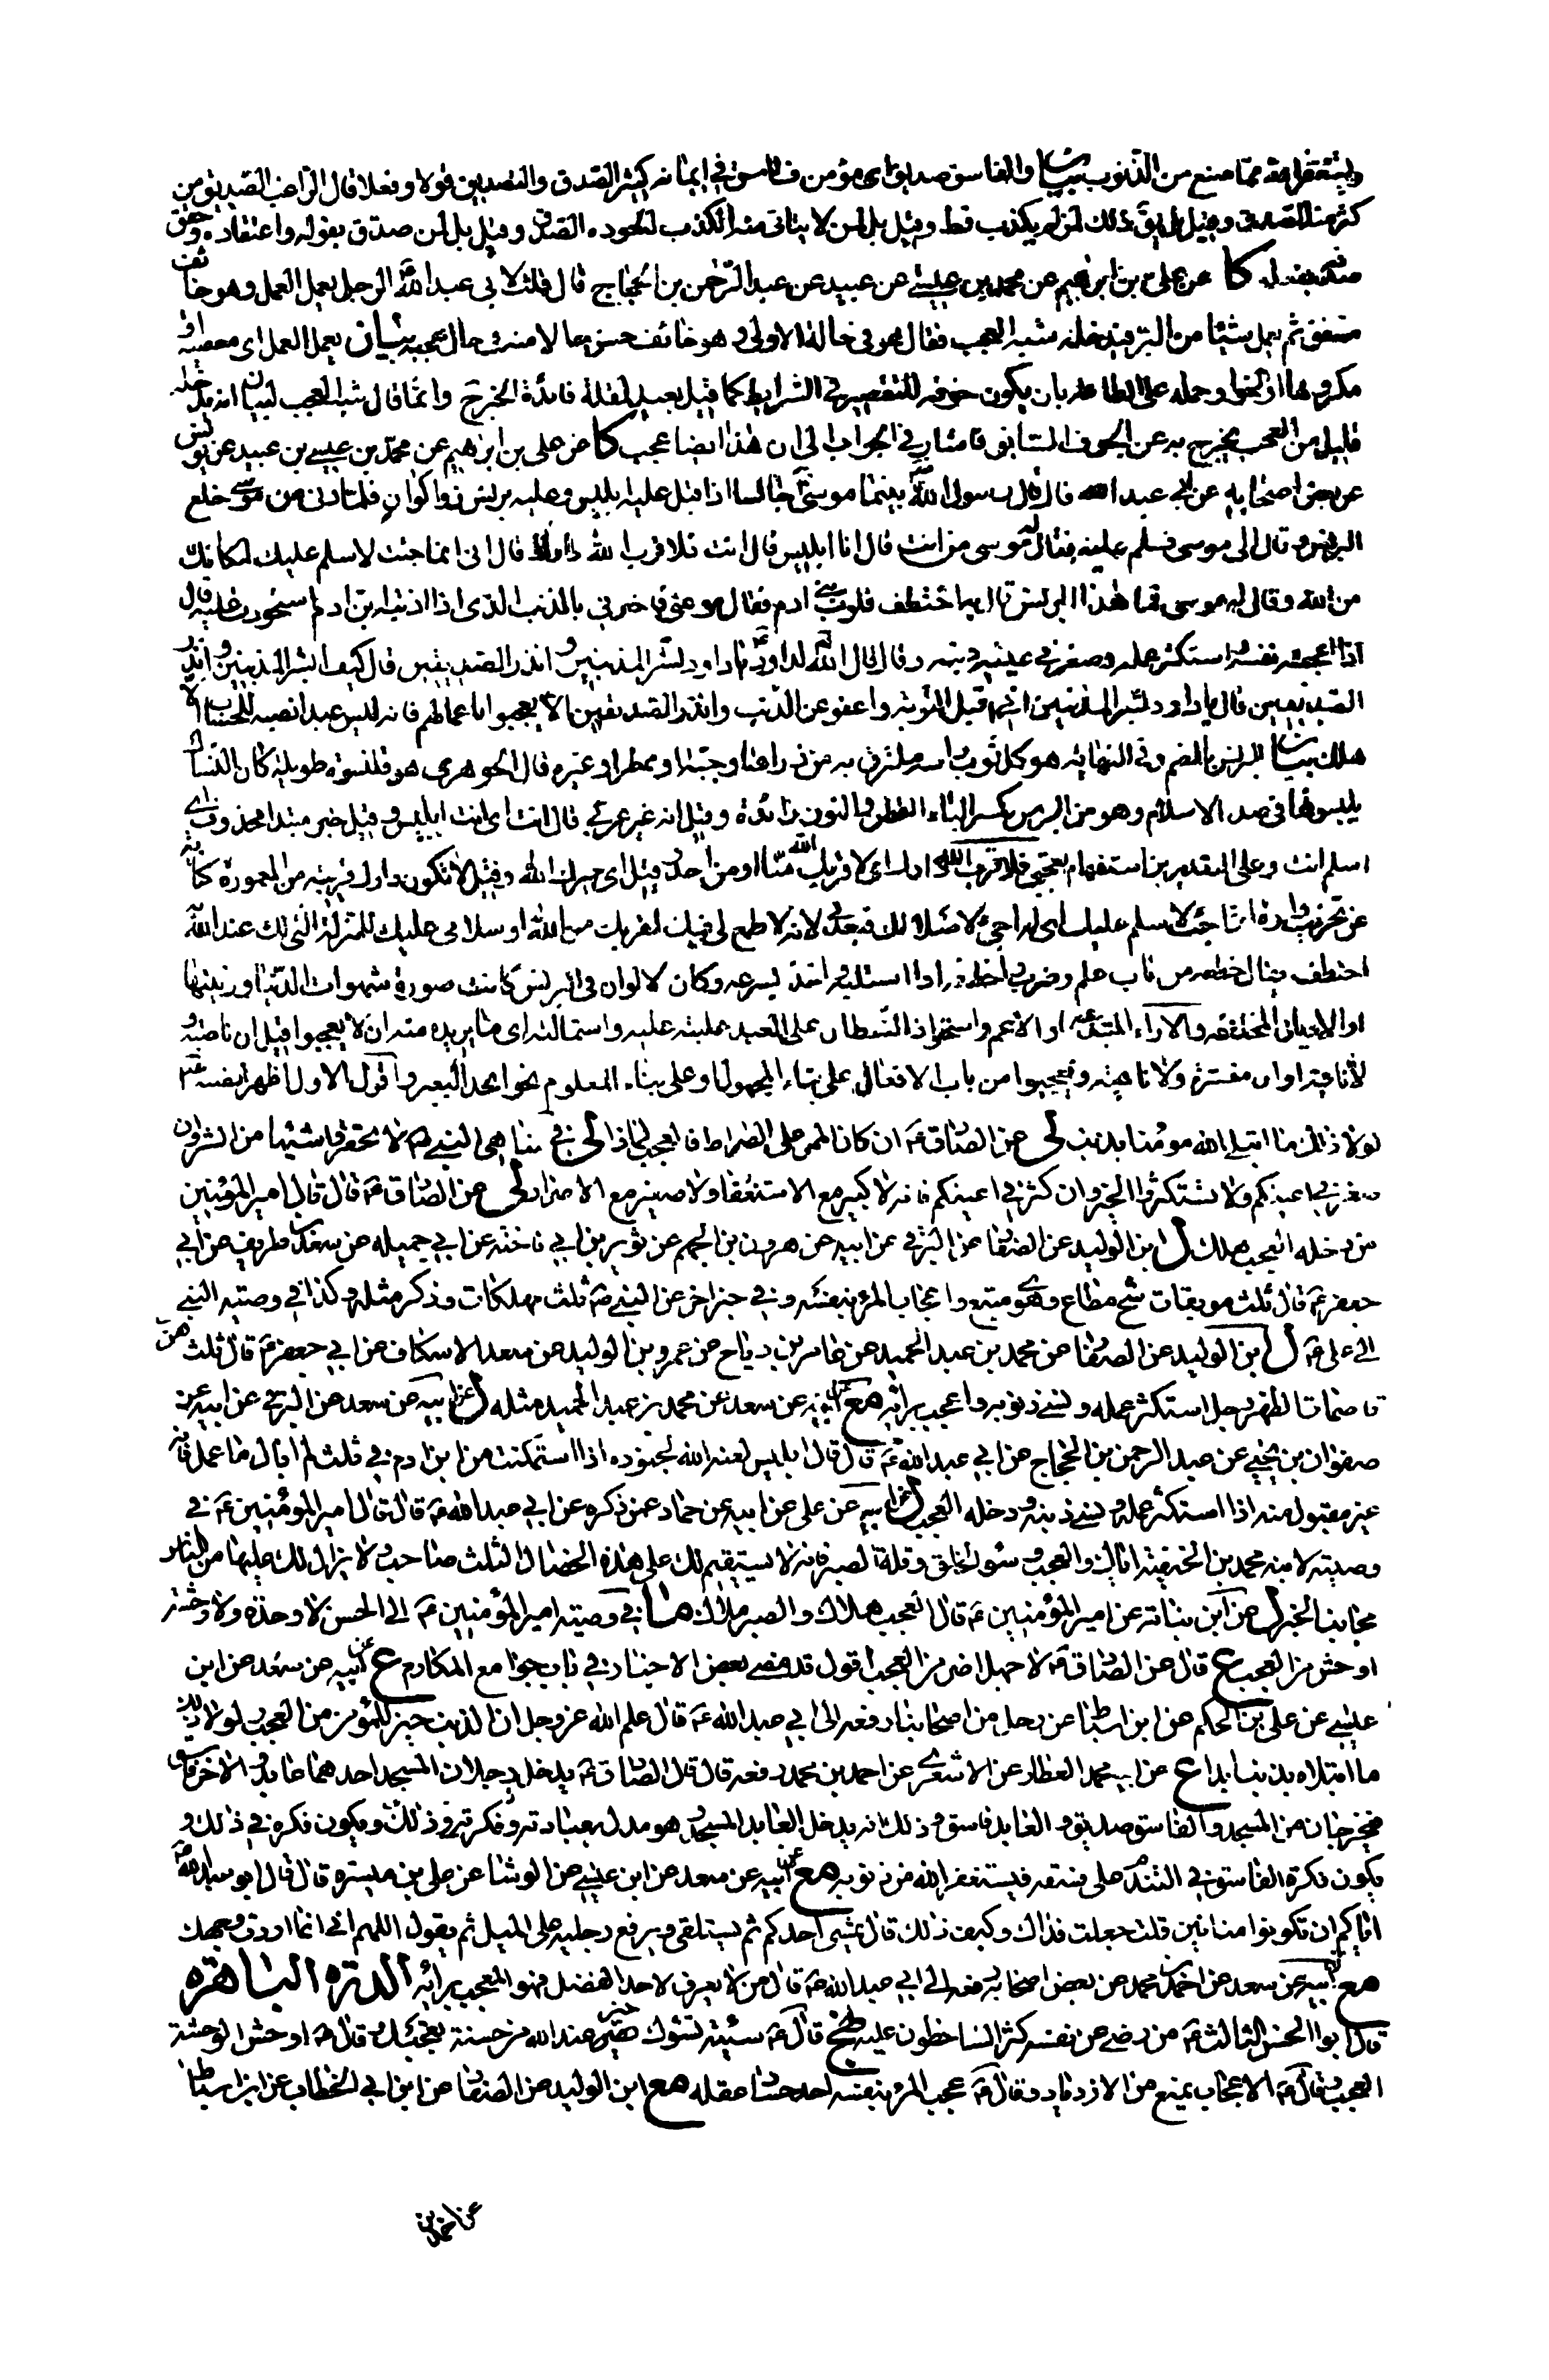 ويستغفر الله مما صنع من الذنوب بيان والفاسق صديق اى مؤمن صادق في إيمانه كثير الصدق والتصديق قولا وفعلا قال الراغب الصديق من
كثر منه الصدق وقيل بل يق ذلك لمن لم يكذب قط وقيل بل لمن لا يتاتى منه الكذب لتعوده الصدق وقيل بل لمن صدق بقوله واعتقاده وحقق
صدقه بفعله كا عن على بن ابرهيم عن محمد بن عيسى عن عبيد عن عبد الرحمن بن الحجاج قال قلت لابى عبد الله ع الرجل يعمل العمل وهو خائف
مشفق ثم يعمل شيئا من البر فيدخله شبه العجب فقال هو في حاله الاولى وهو خائف احسن حالا منه في حال عجبه بيان يعمل العمل اى معصية او
مكروها او لغوا وحمله على الطاعة بان يكون خوفه للتقصير في الشرايط كما قيل بعيد لقلة فائدة الخبر ح وانما قال شبه العجب لبيان انه يدخله
قليل من العجب يخرج به عن الخوف السابق فاشار في الجواب الى ان هذا ايضا عجب كا عن على بن ابرهيم عن محمد بن عيسى بن عبيد عن يونس
عن بعض اصحابه عن ابى عبد الله قال قال رسول الله بينما موسى ع جالسا اذ اقبل عليه ابليس وعليه برنس ذو الوان فلما دنى من موسى خلع
البرنس وقال الى موسى فسلم عليه فقال له موسى من انت قال انا ابليس قال انت فلا قرب الله دارك قال انى انما جئت لاسلم عليك لمكانك
من الله وقال له موسى فما هذا البرنس قال به اختطف قلوب بنى ادم فقال موسى فاخبرنى بالذنب الذى اذا اذنبه ابن ادم استحوذت عليه قال
اذا اعجبته نفسه واستكثر عمله وصغر في عينيه ذنبه وقال قال الله لداود ع يا داود بشر المذنبين وانذر الصديقين قال كيف ابشر المذنبين وانذر
الصديقين قال يا داود بشر المذنبين انى اقبل التوبة واعفو عن الذنب وانذر الصديقين الا يعجبوا باعمالهم فانه ليس عبد انصبه للحساب الا
هلك بيان البرنس بالضم وفي النهاية هو كل ثوب راسه ملتزق به من دراعة او جبة او ممطر او غيره قال الجوهرى هو قلنسوة طويلة كان النساك
يلبسونها في صدر الاسلام وهو من البرس بكسر الباء القطن والنون زائدة وقيل انه غير عربى قال انت اى انت ابليس وقيل خبر مبتدا محذوف اى
اسلم انت وعلى التقديرين استفهام تعجبى فلا قرب الله دارك اى لا قربك الله منا او من احد وقيل اى حيرك الله وقيل لا تكون دارك قريبة من المعمورة كناية
عن تخريب داره انما جئت لاسلم عليك اى لم اجئ لاضلالك فتبعدنى لانه لا طمع لى فيك لقربك من الله او سلامى عليك للمنزلة التى لك عند الله
اختطف يقال خطفه من باب علم وضرب واختطفه اذا استلبه واخذه بسرعة وكان الالوان في البرنس كانت صورة شهوات الدنيا وزينتها
او الاديان المختلفة والاراء المبتدعة او الاعم واستحواذ الشيطان على العبد غلبته عليه واستمالته اى ما يريده منه ان لا يعجبوا قيل ان ناصبة و
لا نافية او ان مفسرة ولا ناهية ويعجبوا من باب الافعال على بناء المجهول او على بناء المعلوم نحو اغد البعير واقول الاول اظهر
لولا ذلك ما ابتلى الله مؤمنا بذنب لى عن الصادق ع ان كان الممر على الصراط فالعجب لماذا لى في مناهى النبي ص لا تحقروا شيئا من الشر وان
صغر في اعينكم ولا تستكثروا الخير وان كثر في اعينكم فانه لا كبير مع الاستغفار ولا صغير مع الاصرار لى عن الصادق ع قال قال امير المؤمنين
من دخله العجب هلك ل ابن الوليد عن الصفار عن البرقي عن ابيه عن هرون بن الجهم عن ثوير بن ابي فاختة عن ابي جميله عن سعد بن طريف عن ابي
جعفر ع قال ثلث موبقات شح مطاع وهوى متبع واعجاب المرء بنفسه وفي خبر اخر عن النبي ص ثلث مهلكات وذكر مثله وكذا في وصية النبي
الى على ع ل ابن الوليد عن الصفار عن محمد بن عبد الحميد عن عامر بن رياح عن عمرو بن الوليد عن سعد الاسكاف عن ابي جعفر ع قال ثلث هن
قاصمات الظهر رجل استكثر عمله ونسى ذنوبه واعجب برايه مع ابيه عن سعد عن محمد بن عبد الحميد مثله ل ابيه عن سعد عن البرقي عن ابيه عن
صفوان بن يحيى عن عبد الرحمن بن الحجاج عن ابي عبد الله ع قال قال ابليس لعنه الله لجنوده اذا استمكنت من ابن ادم في ثلث لم ابال ما عمل فانه
غير مقبول منه اذا استكثر عمله ونسى ذنبه ودخله العجب ل ابيه عن على عن ابيه عن حماد عمن ذكره عن ابي عبد الله ع قال قال امير المؤمنين ع في
وصيته لابنه محمد بن الحنفية اياك والعجب وسوء الخلق وقلة الصبر فانه لا يستقيم لك على هذه الخصال الثلث صاحب ولا يزال لك عليها من الناس
مجانب الخبر ل عن ابن نباته عن امير المؤمنين ع قال العجب هلاك والصبر ملاك ما في وصية امير المؤمنين ع الى الحسن لا وحدة ولا وحشة
اوحش من العجب ع قال عن الصادق ع لا جهل اضر من العجب اقول قد مضى بعض الاخبار في باب جوامع المكارم ع ابيه عن سعد عن ابن
عيسى عن على بن الحكم عن ابن اسباط عن رجل من اصحابنا رفعه الى ابي عبد الله ع قال علم الله عز وجل ان الذنب خير للمؤمن من العجب ولولا ذلك
ما ابتلاه بذنب ابدا ع عن ابيه محمد العطار عن الاشعرى عن احمد بن محمد رفعه قال قال الصادق ع يدخل رجلان المسجد احدهما عابد والاخر فاسق
فيخرجان من المسجد والفاسق صديق والعابد فاسق وذلك انه يدخل العابد المسجد وهو مدل بعبادته وفكرته في ذلك ويكون فكره في ذلك و
يكون فكرة الفاسق في التندم على فسقه فيستغفر الله من ذنوبه مع ابيه عن سعد عن ابن عيسى عن الوشا عن على بن ميسره قال قال ابو عبد الله ع
اياكم ان تكونوا منانين قلت جعلت فداك وكيف ذلك قال يمشى احدكم ثم يستلقى ويرفع رجليه على الميل ثم يقول اللهم اني انما اردت وجهك
مع ابيه عن سعد عن احمد بن محمد عن بعض اصحابه رفعه الى ابي عبد الله ع قال من لا يعرف لاحد الفضل فهو المعجب برايه الدرة الباهرة
قال ابو الحسن الثالث ع من رضى عن نفسه كثر الساخطون عليه نهج قال ع سيئة تسؤك خير عند الله من حسنة تعجبك وقال ع اوحش الوحشة
العجب وقال ع الاعجاب يمنع من الازدياد وقال ع عجب المرء بنفسه احد حساد عقله مع ابن الوليد عن الصفار عن ابن ابي الخطاب عن ابن اسباط
عن احمد بن